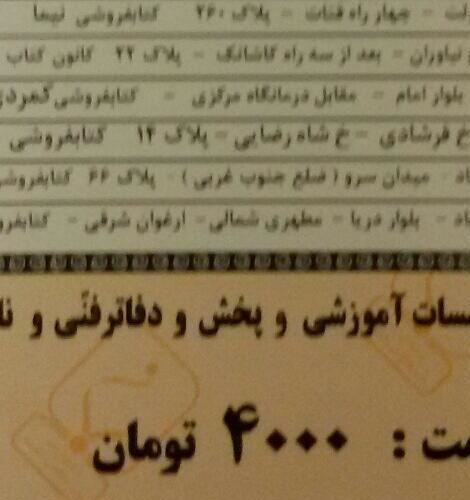 لت - چهار راه قنات - پلاک ۲۶۰ کتابفروشی نیما
نیاوران - بعد از سه راه کاشانک - پلاک ۲۲ کانون کتاب
بلوار امام - مقابل درمانگاه مرکزی - کتابفروشی
خ فرشادی - خ شاه رضایی - پلاک ۱۴ کتابفروشی
اد - میدان سرو ( ضلع جنوب غربی ) - پلاک ۶۶ کتابفروش
اد - بلوار دریا - مطهری شمالی - ارغوان شرقی - کتابفرو
سسات آموزشی و پخش و دفاتر فنّی و نا
مت : ۴۰۰۰ تومان